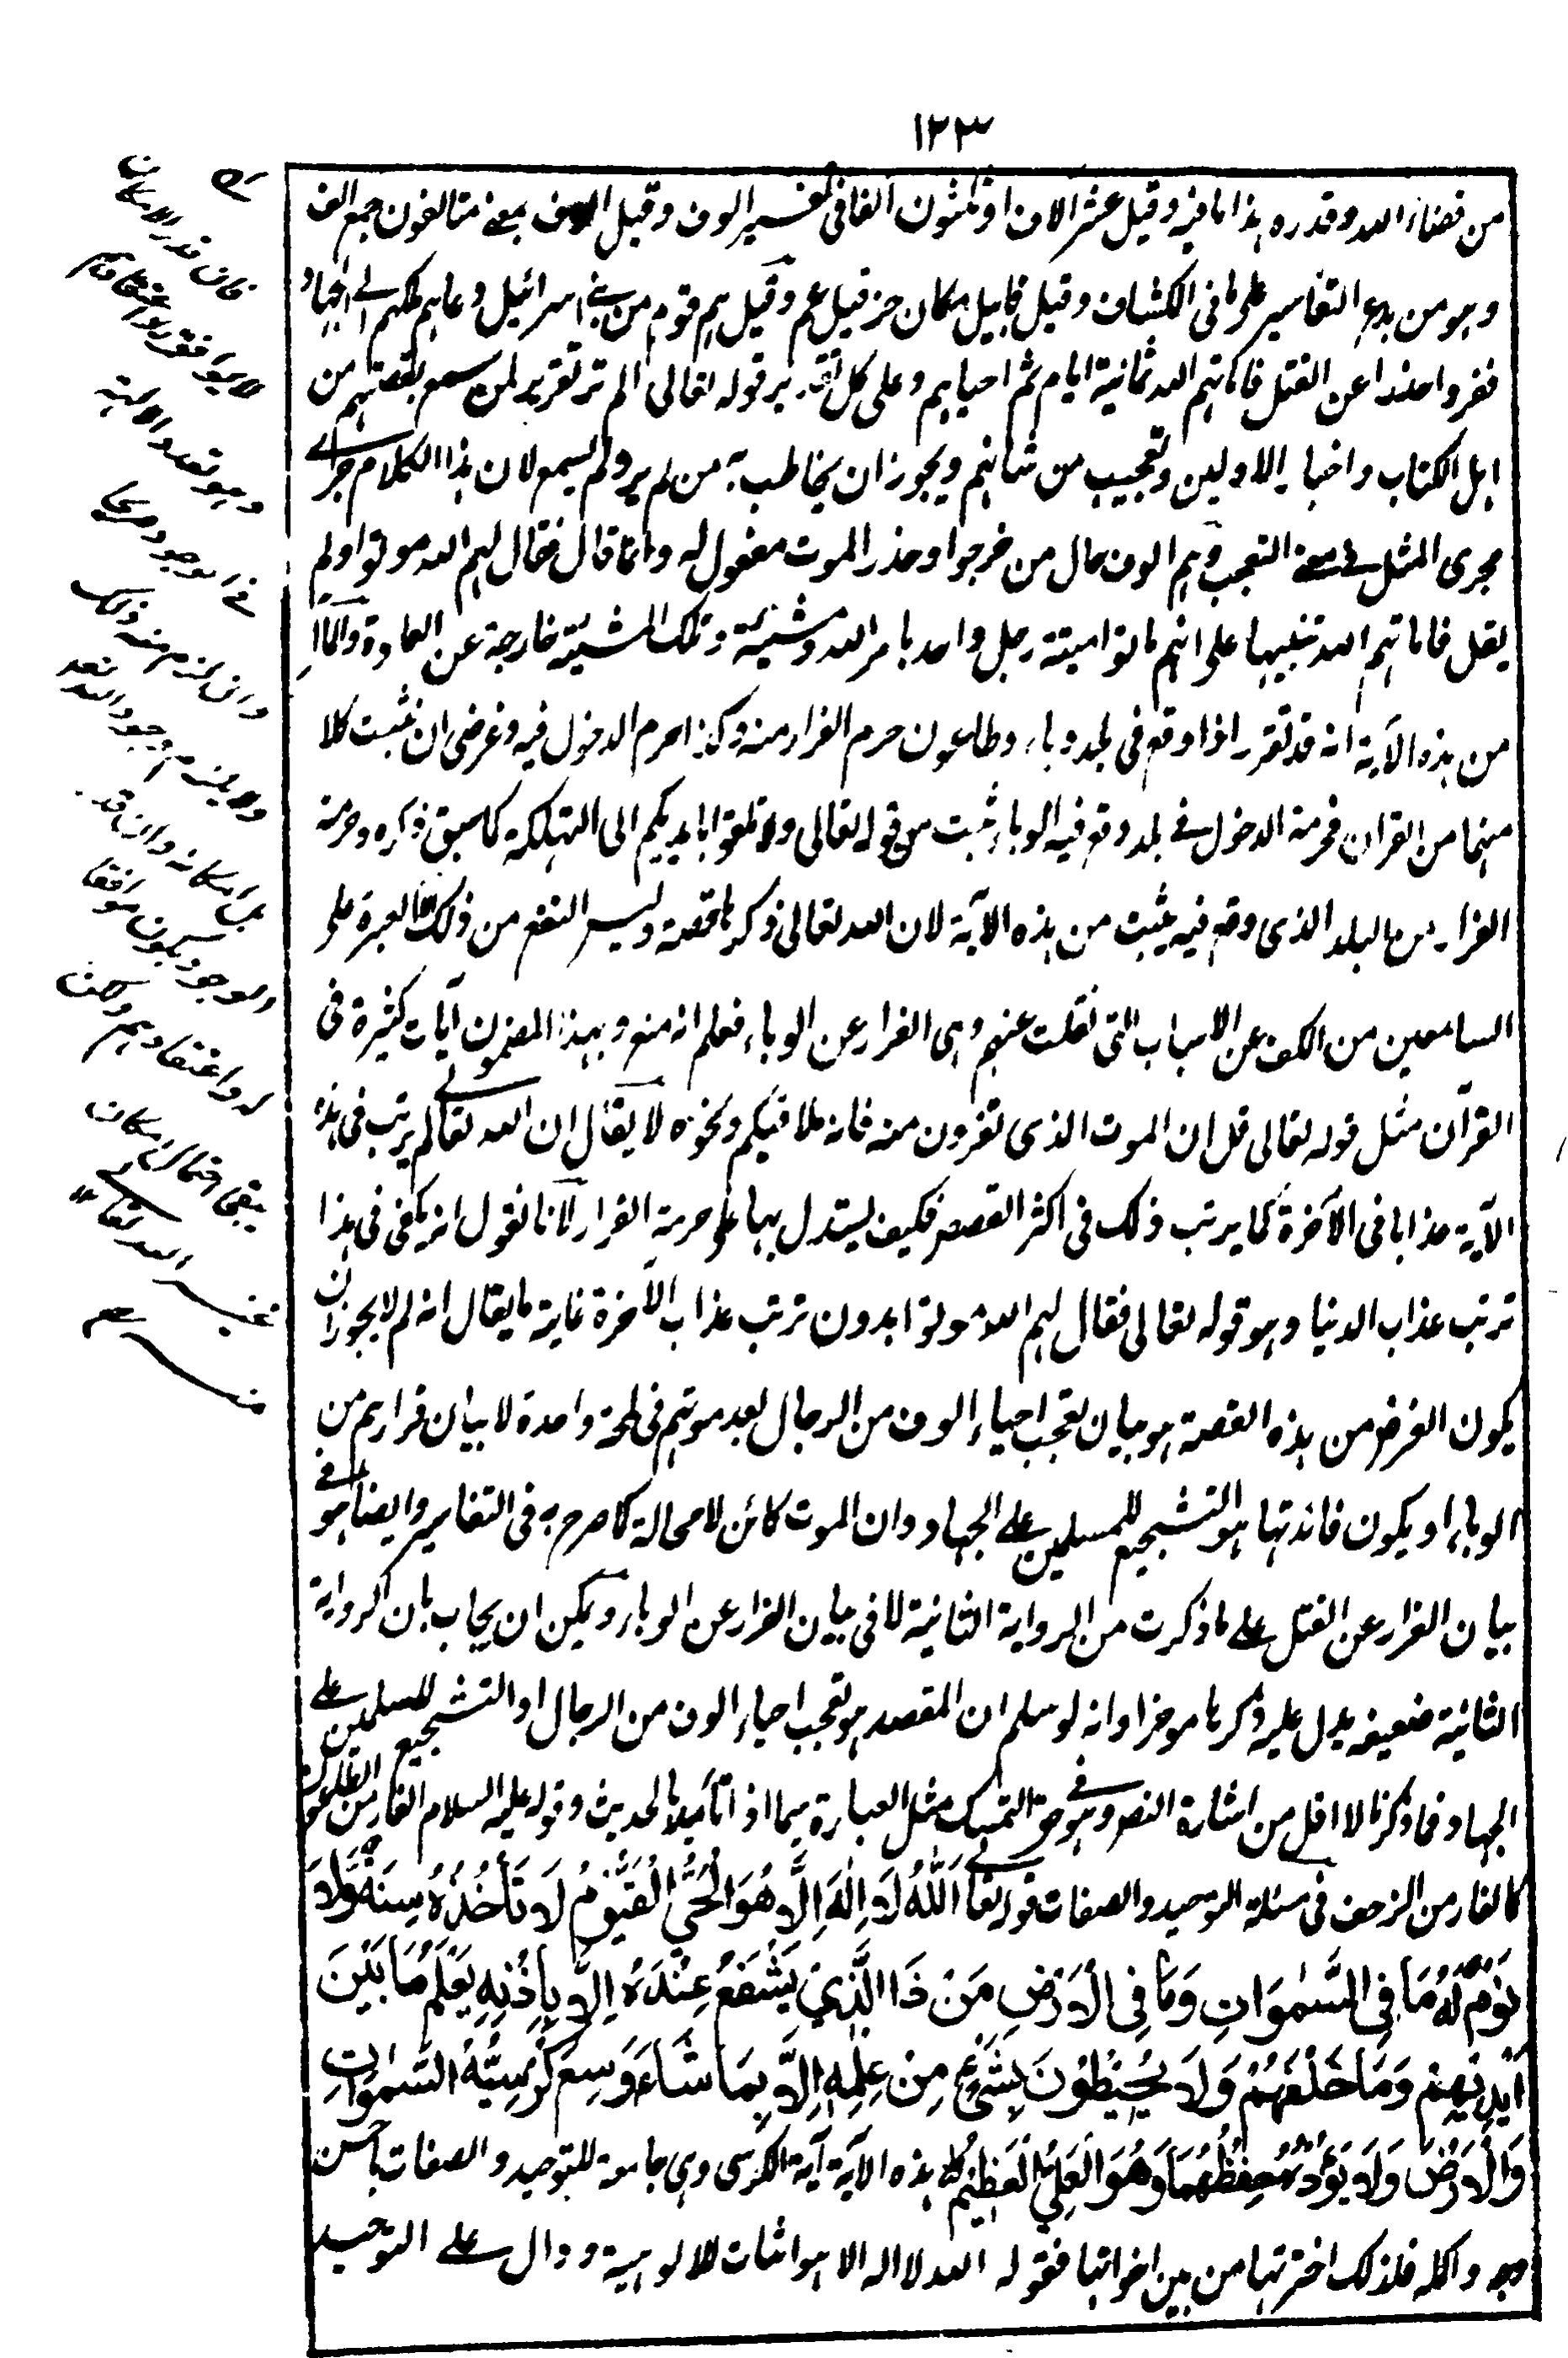 ١٢٣
من قضاء الله وقدره هذا ما فيه وقيل عشر الاف او ثلثون الفا فى تفسير الوف وقيل الوف بمعنى متالفون جمع الف
وهو من بدع التفاسير على ما فى الكشاف وقيل مكان حزقيل عم وقيل هم قوم من بنى اسرائيل دعاهم ملكهم الى الجهاد
ففروا حذرا عن القتل فاماتهم الله ثمانية ايام ثم احياهم وعلى كل تقدير قوله تعالى الم تر تقرير لمن سمع بقصتهم من
اهل الكتاب واخبار الاولين وتعجيب من شانهم ويجوز ان يخاطب به من لم ير ولم يسمع لان هذا الكلام جرى
مجرى المثل فى معنى التعجب وهم الوف حال من خرجوا وحذر الموت مفعول له وانما قال فقال لهم الله موتوا ولم
يقل فاماتهم الله تنبيها على انهم ماتوا ميتة رجل واحد بامر الله ومشيئة وتلك المشيئة خارجة عن العادة والما
من هذه الآية انه قد تقرر اذا وقع فى بلد وباء وطاعون حرم الفرار منه وكذا حرم الدخول فيه وغرضى ان نثبت كلا
منهما من القران فحرمة الدخول فى بلد وقع فيه الوباء ثبت من قوله تعالى ولا تلقوا بايديكم الى التهلكة كما سبق ذكره وحرمة
الفرار من البلد الذى وقع فيه يثبت من هذه الآية لان الله تعالى ذكرها قصة وليس النفع من ذلك الا العبرة على
السامعين من الكف عن الاسباب التى نقلت عنهم وهى الفرار عن الوباء فعلم انه منع وبهذا المضمون آيات كثيرة فى
القرآن مثل قوله تعالى قل ان الموت الذى تفرون منه فانه ملاقيكم ونحوه لا يقال ان الله تعالى لم يرتب فى هذه
الآية عذابا فى الآخرة كما يرتب ذلك فى اكثر القصص فكيف يستدل بها على حرمة الفرار لانا نقول انه يكفى فى هذا
ترتب عذاب الدنيا وهو قوله تعالى فقال لهم الله موتوا بدون ترتب عذاب الآخرة غاية ما يقال انه لم لا يجوز ان
يكون الغرض من هذه القصة هو بيان تعجب احياء الوف من الرجال بعد موتهم فى لمحة واحدة لا بيان فرارهم من
الوباء او يكون فائدتها هو التشجيع للمسلمين على الجهاد وان الموت كائن لا محالة كما صرح به فى التفاسير وايضا هو فى
بيان الفرار عن القتل على ما ذكرت من الرواية الثانية لا فى بيان الفرار عن الوباء ويمكن ان يجاب بان الرواية
الثانية ضعيفة يدل عليه ذكرها موخرا وانه لو سلم ان المقصد هو تعجب احياء الوف من الرجال او التشجيع للمسلمين على
الجهاد فما ذكرنا لا اقل من اشارة النص وهو فى حق التمسك مثل العبارة سيما اذا تأيد بالحديث وقوله عليه السلام الفار من الطاعون
كالفار من الزحف فى مسئلة التوحيد والصفات قوله تعالى اَللّٰهُ لَا اِلٰهَ اِلَّا هُوَ الْحَيُّ الْقَيُّوْمُ لَا تَأْخُذُهٗ سِنَةٌ وَّلَا
نَوْمٌ لَهٗ مَا فِى السَّمٰوَاتِ وَمَا فِى الْاَرْضِ مَنْ ذَا الَّذِيْ يَشْفَعُ عِنْدَهٗ اِلَّا بِاِذْنِهٖ يَعْلَمُ مَا بَيْنَ
اَيْدِيْهِمْ وَمَا خَلْفَهُمْ وَلَا يُحِيْطُوْنَ بِشَيْءٍ مِنْ عِلْمِهٖ اِلَّا بِمَا شَاءَ وَسِعَ كُرْسِيُّهُ السَّمٰوَاتِ
وَالْاَرْضَ وَلَا يَؤُدُهٗ حِفْظُهُمَا وَهُوَ الْعَلِيُّ الْعَظِيْمُ هذه الآية آية الكرسى وهى جامعة للتوحيد والصفات باحسن
وجه واكمله فلذلك اخترتها من بين اخواتها فقوله الله لا اله الا هو اثبات للالوهية ودال على التوحيد
فان قدر الامكان
لا يوافق لاعتقادهم
وهو تعدد الالهة
فى الوجود صريحا
وان لزم منه ذلك
ولا يلزم وجود الله تعد
بل امكانه وان قدر
الموجود يكون موافقا
لاعتقادهم ولكن
يبقى احتمال امكان
غير الله تعالى ١٢
منه سلمه